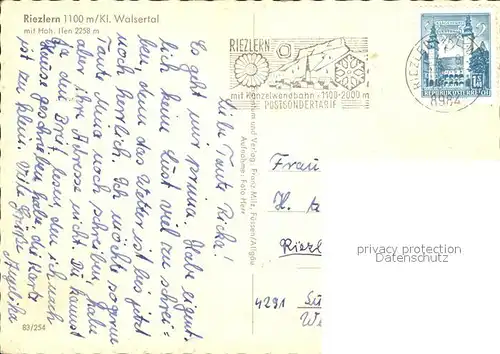 Riezlern 1100 m/Kl. Walsertal
mit Hoh. Ifen 2258 m
Liebe Tante Ricka!
Es geht mir prima. Habe eigent-
lich keine Lust viel zu schrei=
ben, denn das Wetter ist bis jetzt
noch herrlich. Ich möchte sogerne
Tante noch schreiben, habe
aber ihre Adresse nicht. Du kannst
ja den Brief lesen, den ich nach
Hause geschrieben habe, die Karte
ist zu klein. Viele Grüße
83/254
RIEZLERN
mit Kanzelwandbahn · 1100-2000 m
POSTSONDERTARIF
RIEZLERN
8984
REPUBLIK ÖSTERREICH
und Verlag: Franz Milz, Füssen/Allgäu
Aufnahme: Foto Herr
Frau
H.
Riezl
4291
privacy protection
Datenschutz